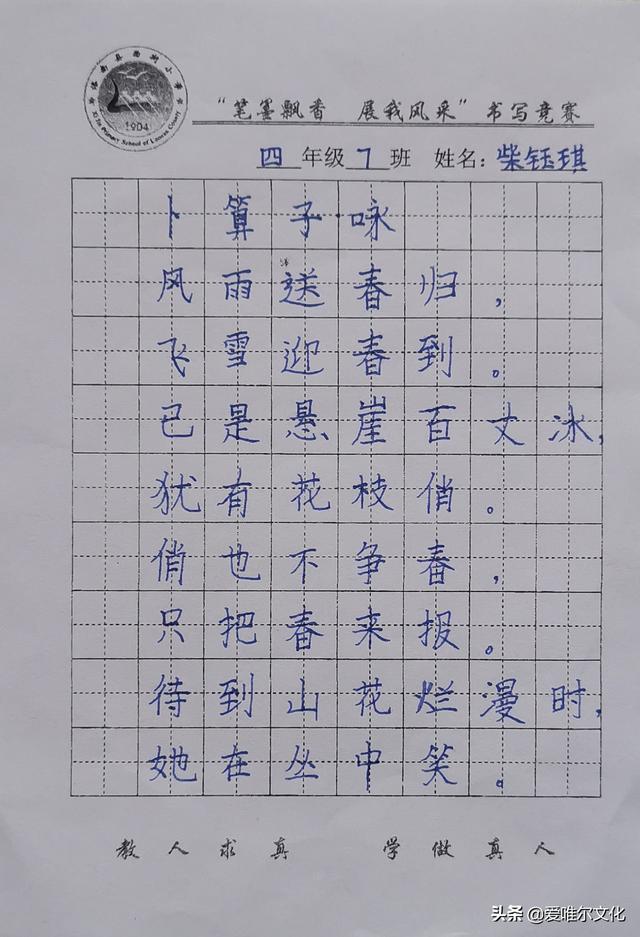 1904
“笔墨飘香 展我风采”书写竞赛
四 年级 7 班 姓名：柴钰琪
卜算子·咏
风雨送春归，
飞雪迎春到。
已是悬崖百丈冰，
犹有花枝俏。
俏也不争春，
只把春来报。
待到山花烂漫时，
她在丛中笑。
教人求真 学做真人
头条 @爱唯尔文化